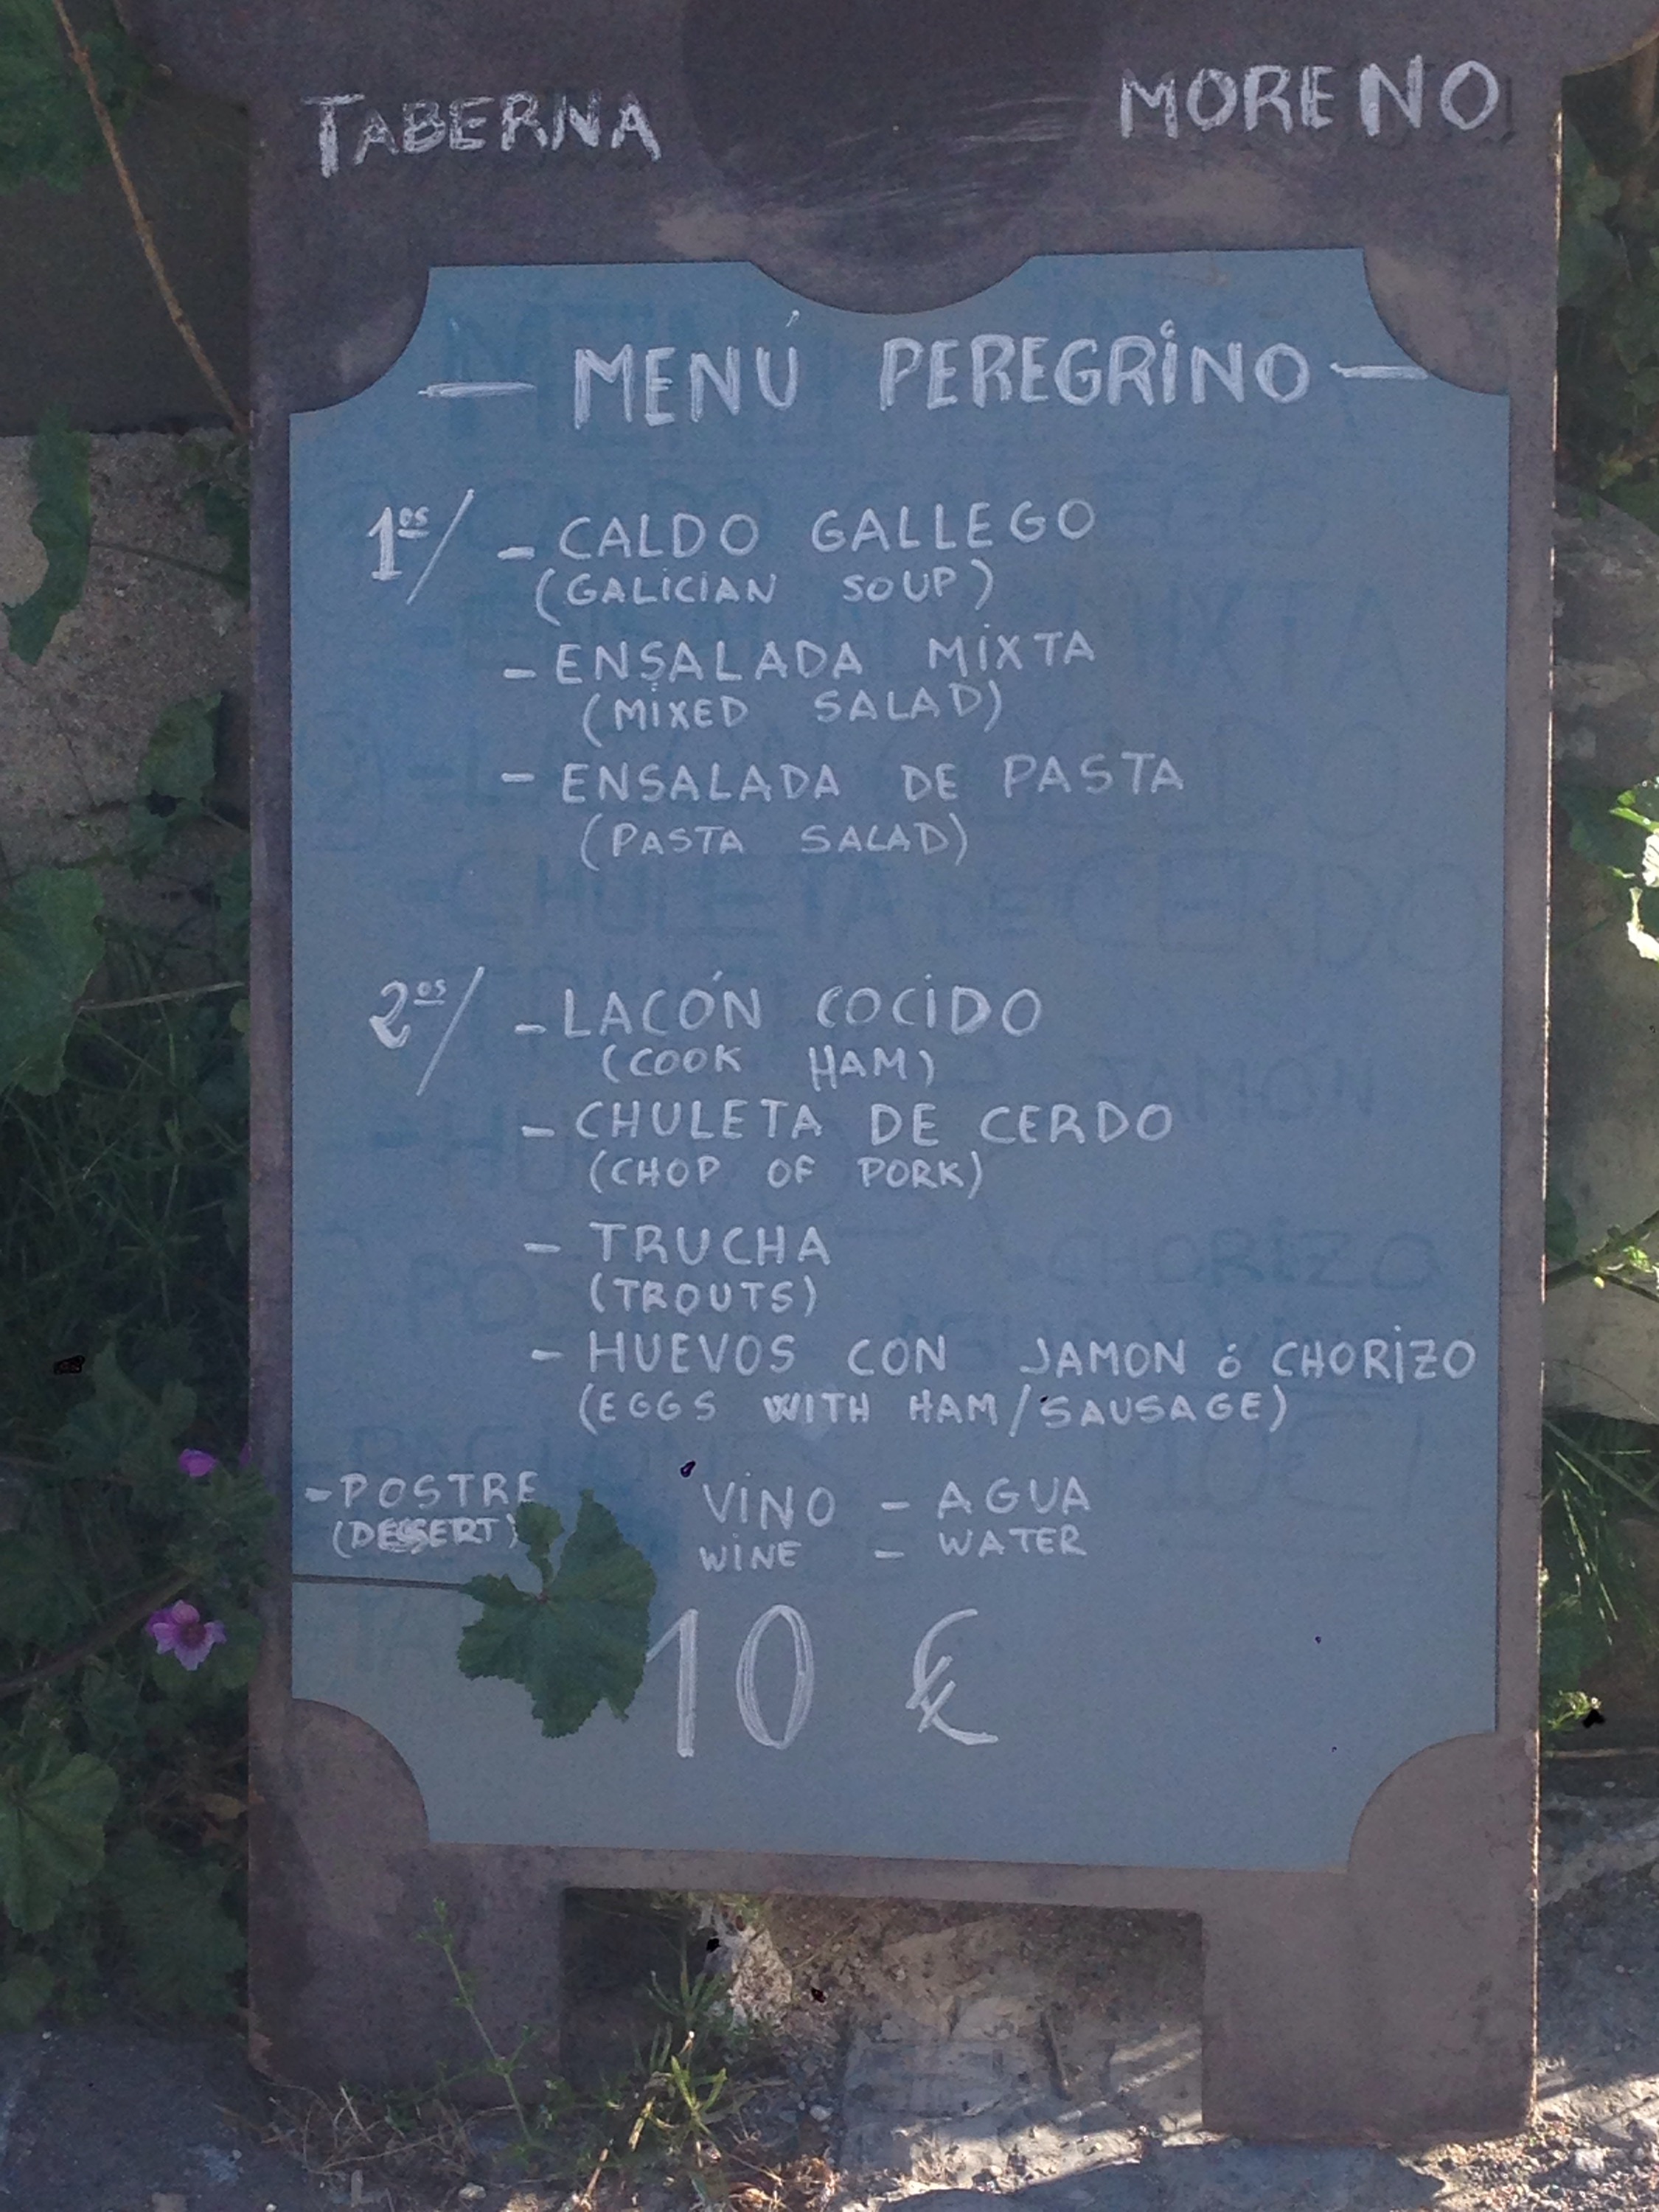 TABERNA MORENO
— MENÚ PEREGRINO —
1os/ - CALDO GALLEGO
(GALICIAN SOUP)
- ENSALADA MIXTA
(MIXED SALAD)
- ENSALADA DE PASTA
(PASTA SALAD)
2os/ - LACÓN COCIDO
(COOK HAM)
- CHULETA DE CERDO
(CHOP OF PORK)
- TRUCHA
(TROUTS)
- HUEVOS CON JAMON ó CHORIZO
(EGGS WITH HAM/SAUSAGE)
- POSTRE VINO - AGUA
(DESSERT) WINE - WATER
10 €